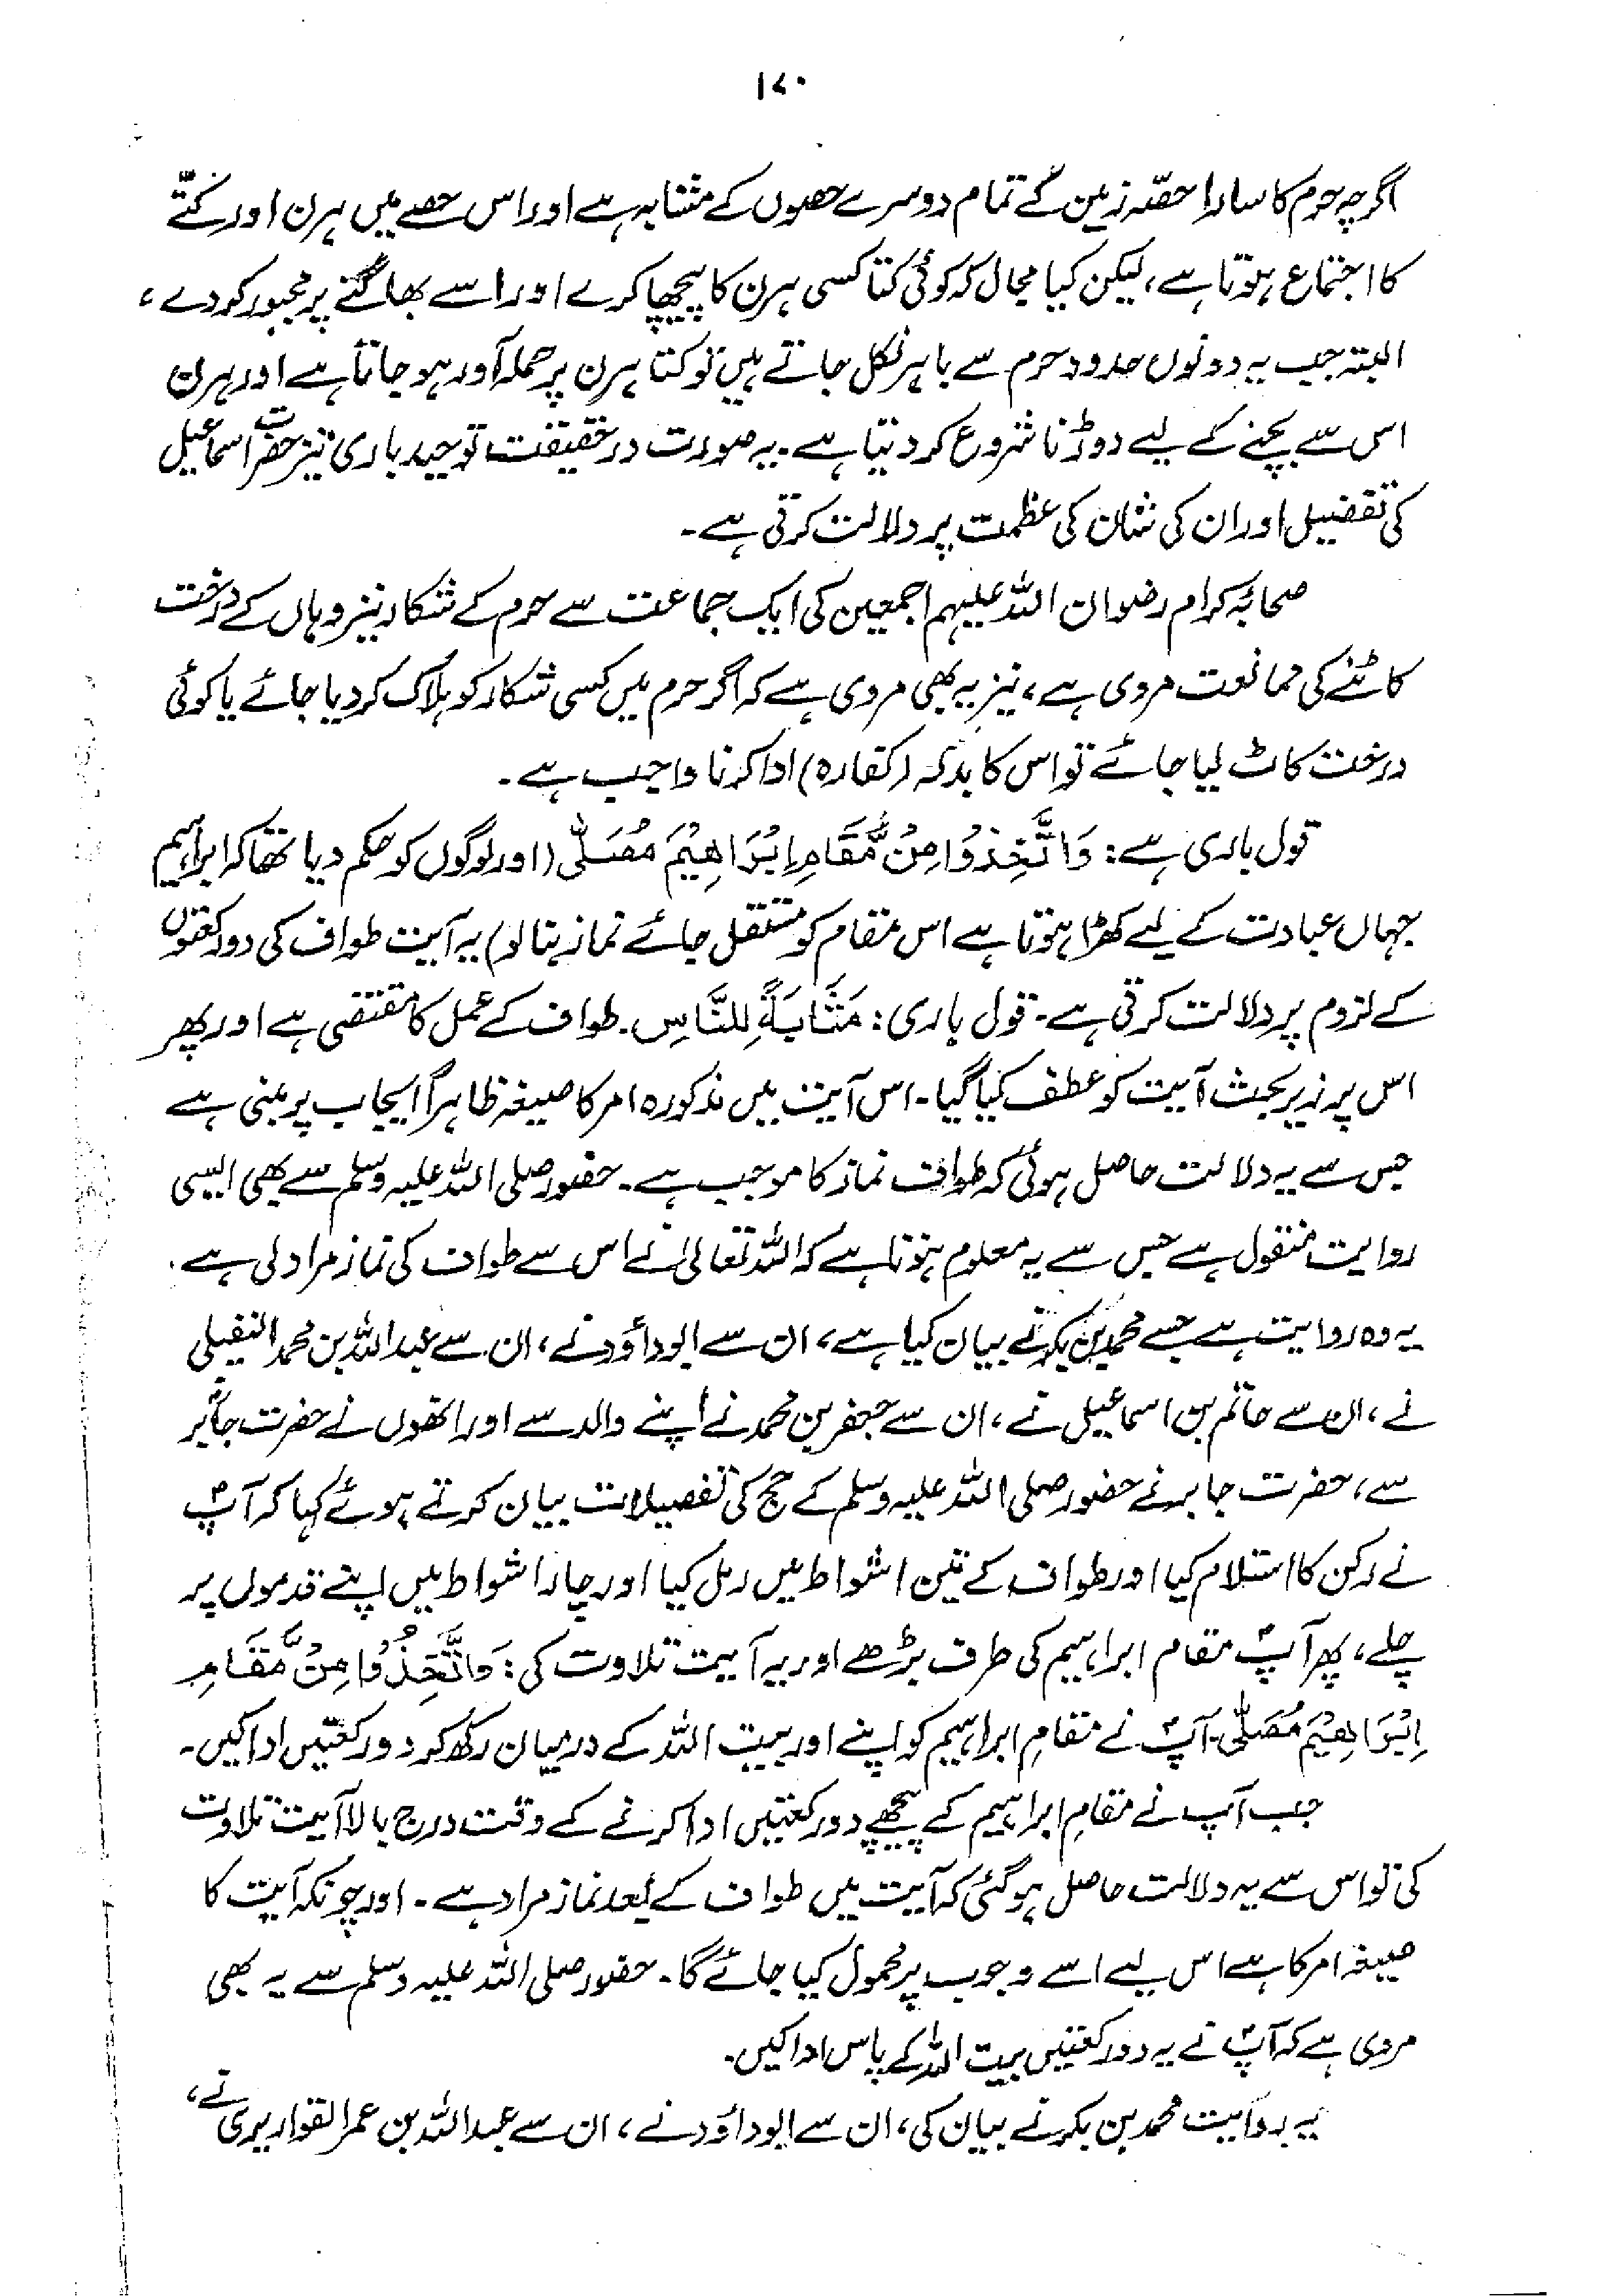 ۱۷۰
اگرچہ حرم کا سارا حصّہ زمین کے تمام دوسرے حصوں کے مشابہ ہے اور اس حصے میں ہرن اور کتّے
کا اجتماع ہوتا ہے، لیکن کیا مجال کہ کوئی کتا کسی ہرن کا پیچھا کرے اور اسے بھاگنے پر مجبور کر دے،
البتہ جب یہ دونوں حدود حرم سے باہر نکل جاتے ہیں تو کتا ہرن پر حملہ آور ہو جاتا ہے اور ہرن
اس سے بچنے کے لیے دوڑنا شروع کر دیتا ہے۔ یہ صورت درحقیقت توحید باری نیز حضرت اسماعیل
کی تفضیل اور ان کی شان کی عظمت پر دلالت کرتی ہے۔
صحابۂ کرام رضوان اللہ علیہم اجمعین کی ایک جماعت سے حرم کے شکار نیز وہاں کے درخت
کاٹنے کی ممانعت مروی ہے، نیز یہ بھی مروی ہے کہ اگر حرم میں کسی شکار کو ہلاک کر دیا جائے یا کوئی
درخت کاٹ لیا جائے تو اس کا بدلہ (کفارہ) ادا کرنا واجب ہے۔
قول باری ہے: وَاتَّخِذُوْا مِنْ مَّقَامِ اِبْرَاهِيْمَ مُصَلًّى (اور لوگوں کو حکم دیا تھا کہ ابراہیم
جہاں عبادت کے لیے کھڑا ہوتا ہے اس مقام کو مستقل جائے نماز بنا لو) یہ آیت طواف کی دو رکعتوں
کے لزوم پر دلالت کرتی ہے۔ قول باری: مَثَابَةً لِلنَّاسِ۔ طواف کے عمل کا مقتضی ہے اور پھر
اس پر زیر بحث آیت کو عطف کیا گیا۔ اس آیت میں مذکورہ امر کا صیغہ ظاہراً ایجاب پر مبنی ہے
جس سے یہ دلالت حاصل ہوئی کہ طواف نماز کا موجب ہے۔ حضور صلی اللہ علیہ وسلم سے بھی ایسی
روایت منقول ہے جس سے یہ معلوم ہوتا ہے کہ اللہ تعالیٰ نے اس سے طواف کی نماز مراد لی ہے۔
یہ وہ روایت ہے جسے محمد بن بکر نے بیان کیا ہے، ان سے ابوداؤد نے، ان سے عبداللہ بن محمد النفیلی
نے، ان سے حاتم بن اسماعیل نے، ان سے جعفر بن محمد نے اپنے والد سے اور انھوں نے حضرت جابرؓ
سے، حضرت جابر نے حضور صلی اللہ علیہ وسلم کے حج کی تفصیلات بیان کرتے ہوئے کہا کہ آپؐ
نے رکن کا استلام کیا اور طواف کے تین اشواط میں رمل کیا اور چار اشواط میں اپنے قدموں پر
چلے، پھر آپؐ مقام ابراہیم کی طرف بڑھے اور یہ آیت تلاوت کی: وَاتَّخِذُوْا مِنْ مَّقَامِ
اِبْرَاهِيْمَ مُصَلًّى۔ آپؐ نے مقامِ ابراہیم کو اپنے اور بیت اللہ کے درمیان رکھ کر دو رکعتیں ادا کیں۔
جب آپ نے مقامِ ابراہیم کے پیچھے دو رکعتیں ادا کرنے کے وقت درج بالا آیت تلاوت
کی تو اس سے یہ دلالت حاصل ہو گئی کہ آیت میں طواف کے بعد نماز مراد ہے۔ اور چونکہ آیت کا
صیغہ امر کا ہے اس لیے اسے وجوب پر محمول کیا جائے گا۔ حضور صلی اللہ علیہ وسلم سے یہ بھی
مروی ہے کہ آپؐ نے یہ دو رکعتیں بیت اللہ کے پاس ادا کیں۔
یہ روایت محمد بن بکر نے بیان کی، ان سے ابوداؤد نے، ان سے عبداللہ بن عمر القواریری نے،